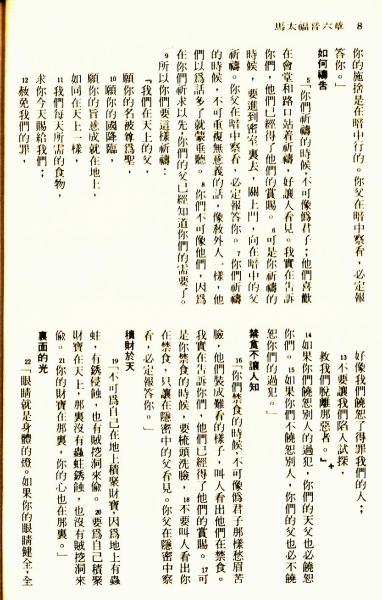 8 馬太福音六章
你的施捨是在暗中行的。你父在暗中察看,必定報
答你。」
如何禱告
5「你們祈禱的時候不可像僞君子;他們喜歡
在會堂和路口站着祈禱,好讓人看見。我實在告訴
你們,他們已經得了他們的賞賜。6可是你祈禱的
時候,要進到密室裏去,關上門,向在暗中的父
祈禱。你父在暗中察看,必定報答你。7你們祈禱
的時候,不可重複無意義的話,像敎外人一樣,他
們以爲話多了就蒙垂聽。8你們不可像他們,因爲
在你們祈求以先,你們的父已經知道你們的需要了。
9所以你們要這樣祈禱:
『我們在天上的父,
願你的名被尊爲聖,
10願你的國降臨,
願你的旨意成就在地上,
如同在天上一樣,
11我們每天所需的食物,
求你今天賜給我們;
12赦免我們的罪,
好像我們饒恕了得罪我們的人;
13不要讓我們陷入試探,
救我們脫離那惡者。』
14如果你們饒恕別人的過犯,你們的天父也必饒恕
你們。15如果你們不饒恕別人,你們的父也必不饒
恕你們的過犯。」
禁食不讓人知
16「你們禁食的時候,不可像僞君子那樣愁眉苦
臉,他們裝成難看的樣子,叫人看出他們在禁食。
我實在告訴你們,他們已經得了他們的賞賜。17可
是你禁食的時候,要梳頭洗臉,18不要叫人看出你
在禁食,只讓在隱密中的父看見。你父在隱密中察
看,必定報答你。」
積財於天
19「不可爲自己在地上積聚財寶,因爲地上有蟲
蛀,有銹侵蝕,也有賊挖洞來偷。20要爲自己積聚
財寶在天上,那裏沒有蟲蛀銹蝕,也沒有賊挖洞來
偷。21你的財寶在那裏,你的心也在那裏。」
裏面的光
22「眼睛就是身體的燈。如果你的眼睛健全,全